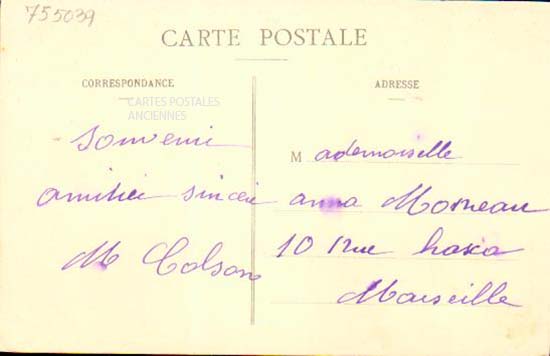 755039
CARTE POSTALE
CORRESPONDANCE
CARTES POSTALES
ANCIENNES
Souvenir
amitiés sincère
M Colson
ADRESSE
Mademoiselle
anna Morneau
10 rue
Marseille